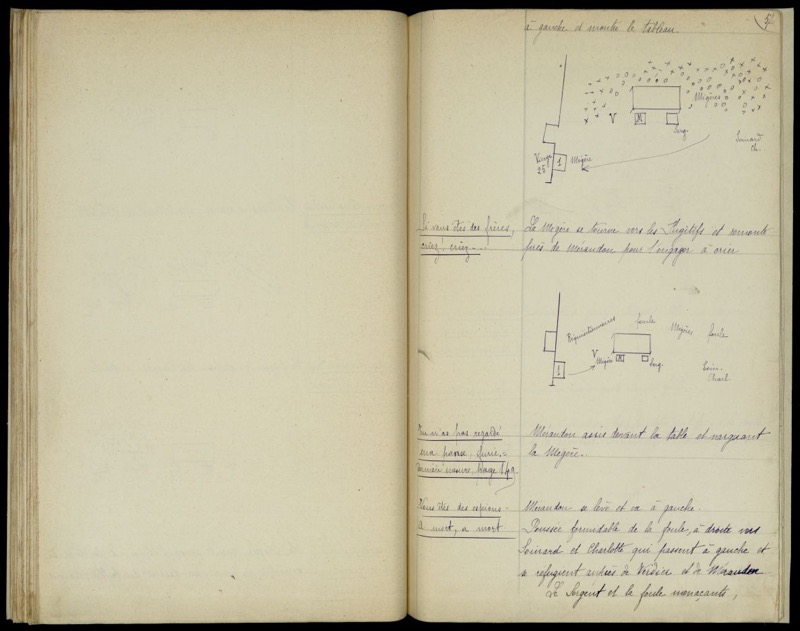 51
à gauche et montre le tableau
Mégères
V
M
Serg
Soinard
Ch.
Vierge
25
1
Mégère
Si vous êtes des frères,
criez! criez ---!
La Mégère se tourne vers les Fugitifs et remonte
près de Mérandon pour l'engager à crier
Réquisitionnaires
foule
Mégères
foule
V
Mégère
M
Serg.
1
Soin.
Charl
Tu n'as pas regardé
ma pauvre furie.=
Dernière mesure, page 149.
Mérandon assis devant la table et narguant
la Mégère.
Vous êtes des espions -
A mort, a mort
Mérandon se lève et va à gauche.
Poussée formidable de la foule, à droite vers
Soinard et Charlotte qui passent à gauche et
se réfugient auprès de Verdier et de Mérandon
Le Sergent et la foule menaçante,